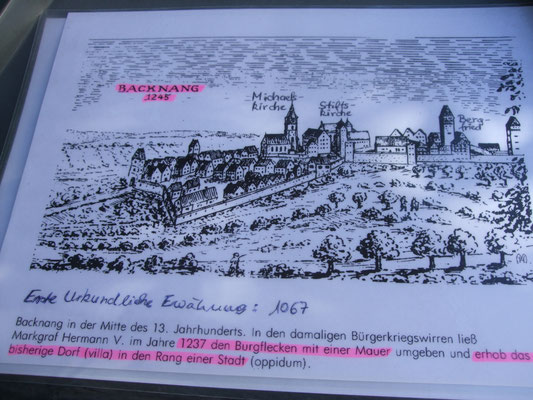 BACKNANG
1245
Michaels
kirche
Stifts
kirche
Berg-
fried
Erste Urkundliche Erwähnung: 1067
Backnang in der Mitte des 13. Jahrhunderts. In den damaligen Bürgerkriegswirren ließ
Markgraf Hermann V. im Jahre 1237 den Burgflecken mit einer Mauer umgeben und erhob das
bisherige Dorf (villa) in den Rang einer Stadt (oppidum).